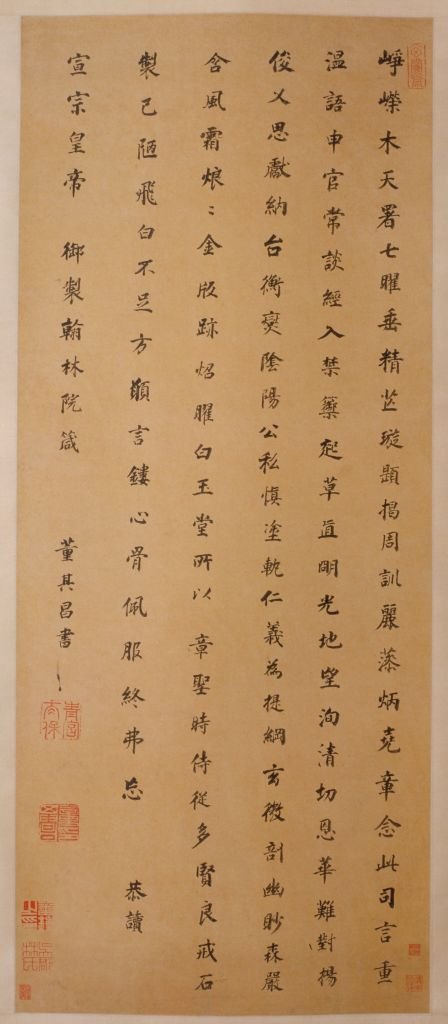 崢嶸木天署七曜垂精芒璇題揭周訓麗藻炳堯章念此司言重
溫語申官常談經入禁籞起草直明光地望洵清切恩華難對揚
俊乂思獻納台衡爕陰陽公私慎塗軌仁義為提綱玄微剖幽眇森嚴
含風霜烺〻金版跡炤曜白玉堂所以章聖時侍從多賢良戒石
製已陋飛白不足方願言鏤心骨佩服終弗忘 恭讀
宣宗皇帝 御製翰林院箴 董其昌書